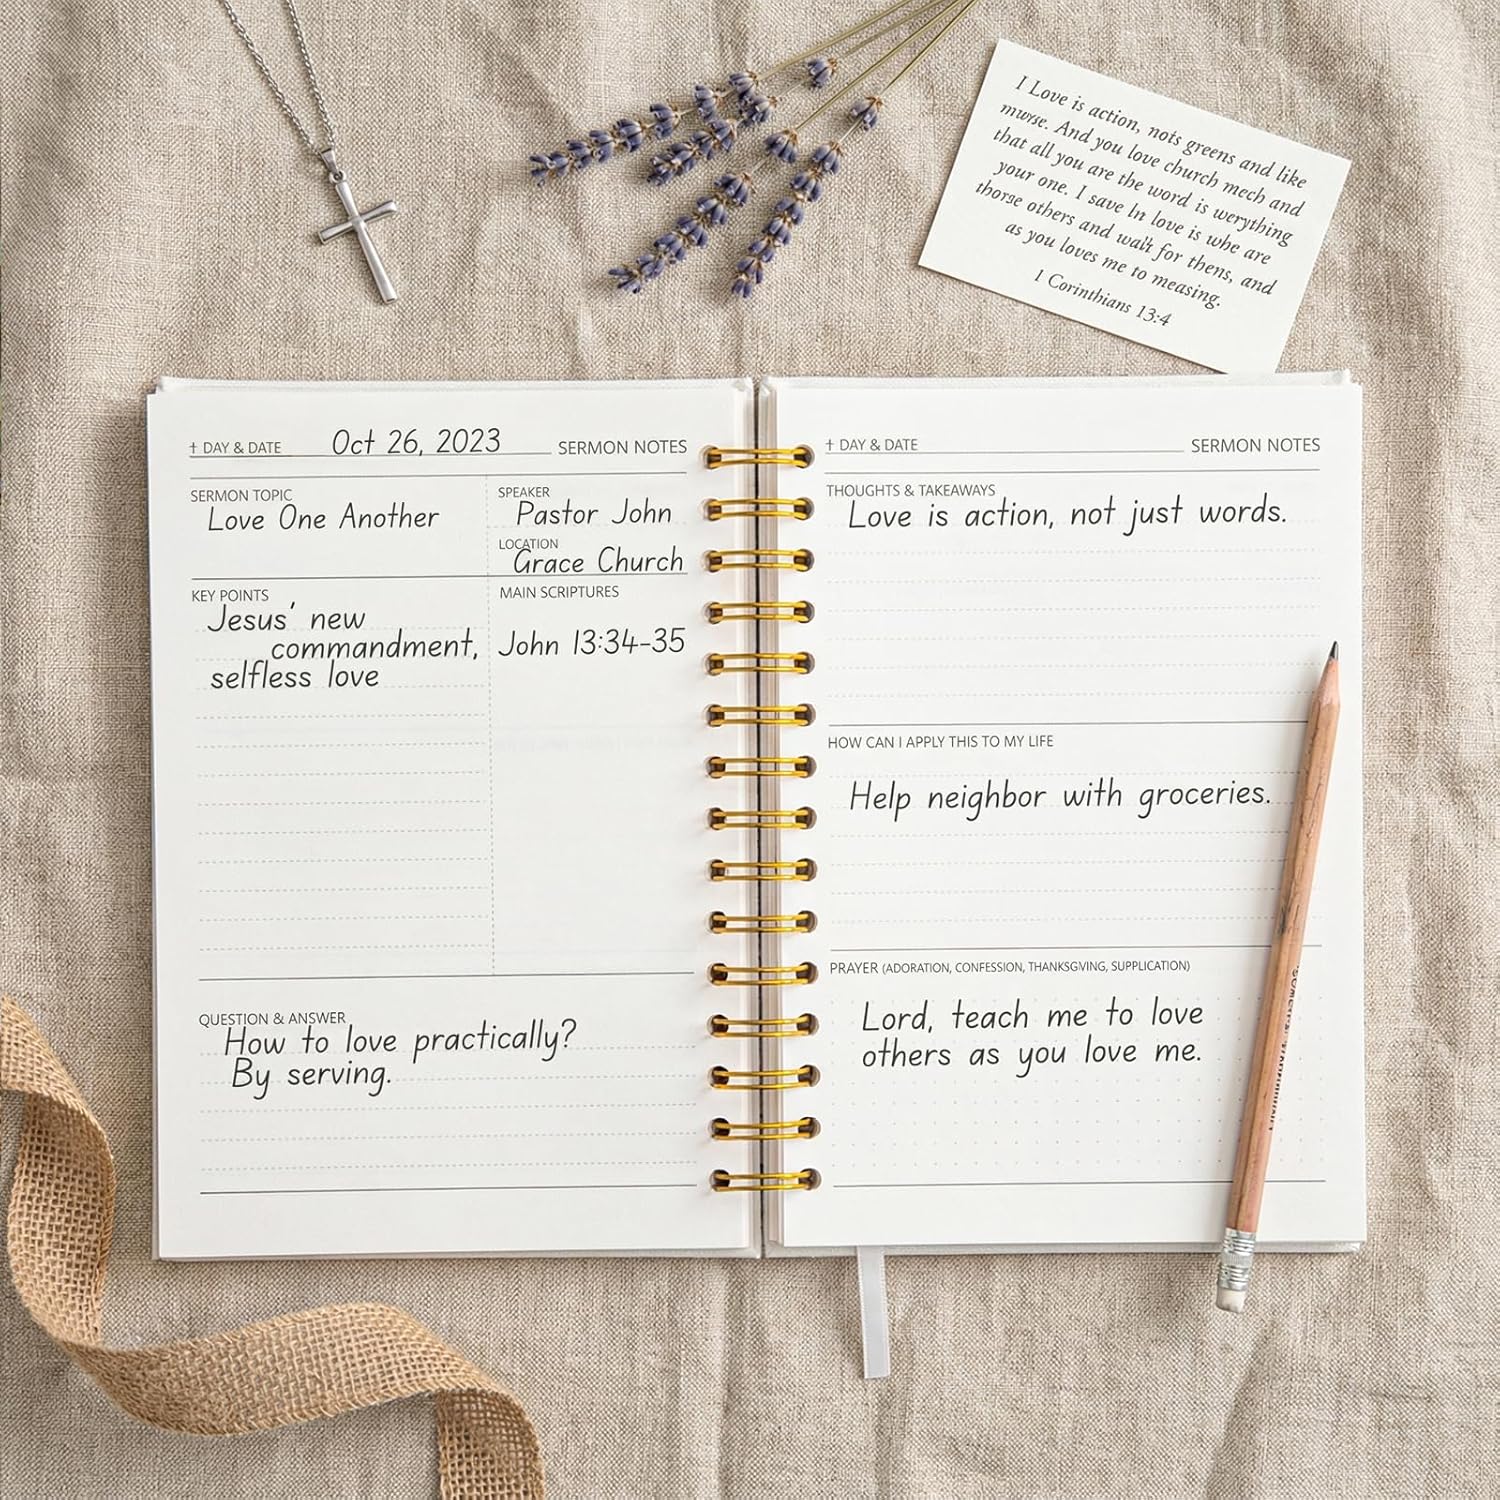 I Love is action, nots greens and like
murse. And you love church mech and
that all you are the word is werything
your one. I save In love is whe are
thorse others and walt for thens, and
as you loves me to measing.
1 Corinthians 13:4
† DAY & DATE Oct 26, 2023 SERMON NOTES
SERMON TOPIC
Love One Another
SPEAKER
Pastor John
LOCATION
Grace Church
KEY POINTS
Jesus' new
commandment,
selfless love
MAIN SCRIPTURES
John 13:34-35
QUESTION & ANSWER
How to love practically?
By serving.
† DAY & DATE SERMON NOTES
THOUGHTS & TAKEAWAYS
Love is action, not just words.
HOW CAN I APPLY THIS TO MY LIFE
Help neighbor with groceries.
PRAYER (ADORATION, CONFESSION, THANKSGIVING, SUPPLICATION)
Lord, teach me to love
others as you love me.